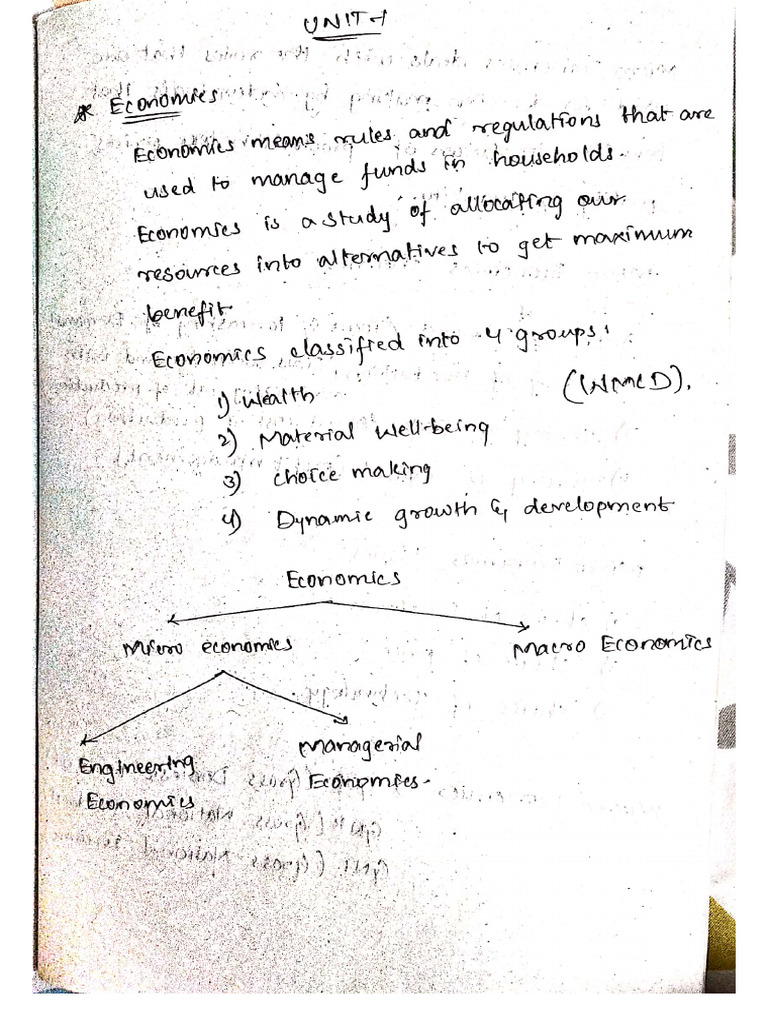 UNIT-1
* Economics
Economics means rules and regulations that are
used to manage funds in households.
Economics is a study of allocating our
resources into alternatives to get maximum
benefit.
Economics, classified into 4 groups:
1) Wealth (WMCD).
2) Material well-being
3) choice making
4) Dynamic growth & development
Economics
Micro economics Macro Economics
Engineering Managerial
Economics Economics.